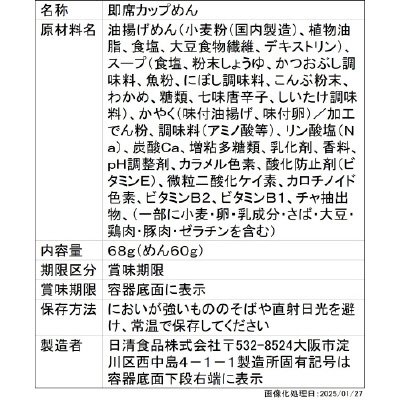 名称 即席カップめん
原材料名 油揚げめん(小麦粉(国内製造)、植物油
脂、食塩、大豆食物繊維、デキストリン)、
スープ(食塩、粉末しょうゆ、かつおぶし調
味料、魚粉、にぼし調味料、こんぶ粉末、
わかめ、糖類、七味唐辛子、しいたけ調味
料)、かやく(味付油揚げ、味付卵)/加工
でん粉、調味料(アミノ酸等)、リン酸塩(N
a)、炭酸Ca、増粘多糖類、乳化剤、香料、
pH調整剤、カラメル色素、酸化防止剤(ビ
タミンE)、微粒二酸化ケイ素、カロチノイド
色素、ビタミンB2、ビタミンB1、チャ抽出
物、(一部に小麦・卵・乳成分・さば・大豆・
鶏肉・豚肉・ゼラチンを含む)
内容量 68g(めん60g)
期限区分 賞味期限
賞味期限 容器底面に表示
保存方法 においが強いもののそばや直射日光を避
け、常温で保存してください
製造者 日清食品株式会社〒532-8524大阪市淀
川区西中島4-1-1製造所固有記号は
容器底面下段右端に表示
画像化処理日:2025/01/27